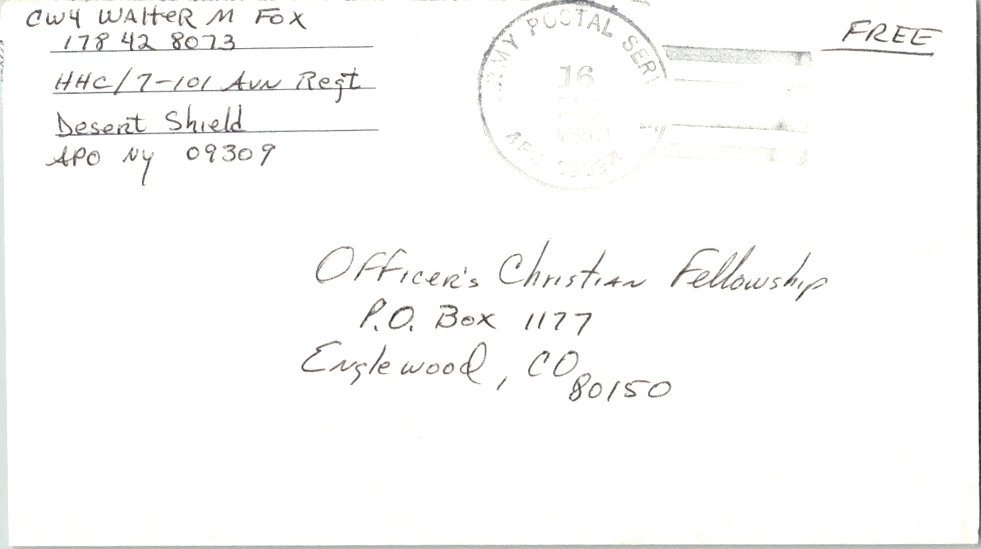 CW4 WALTER M FOX
178 42 8073
HHC/7-101 Avn Regt
Desert Shield
APO NY 09309
ARMY POSTAL
16
FREE
Officer's Christian Fellowship
P.O. Box 1177
Englewood, CO
80150